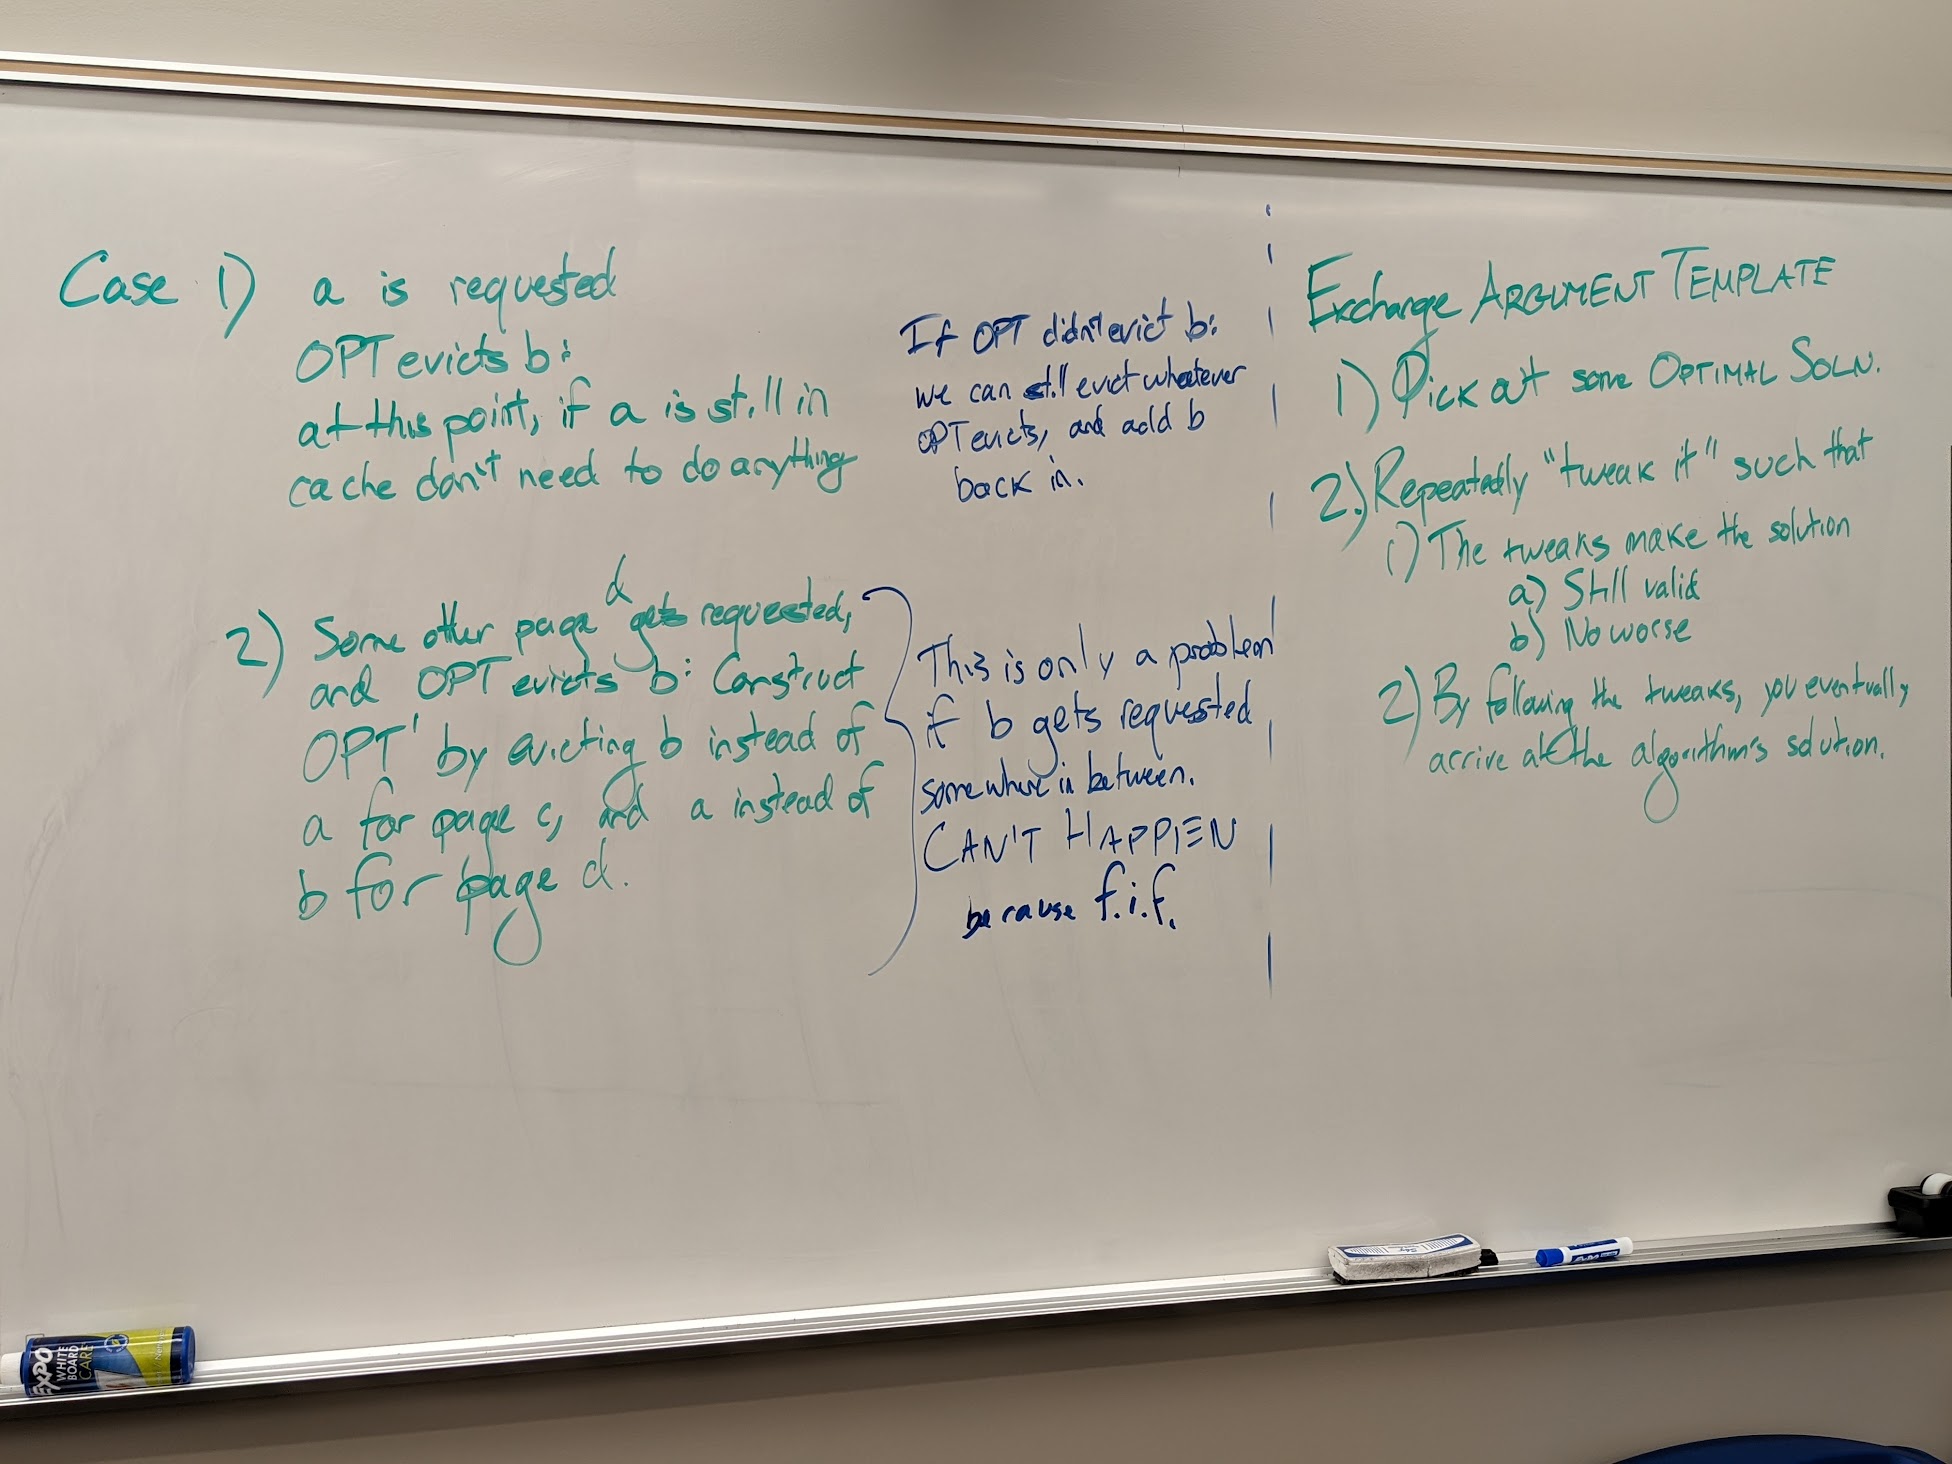 Case 1) a is requested
OPT evicts b:
at this point, if a is still in
cache don't need to do anything
If OPT didn't evict b:
we can still evict whatever
OPT evicts, and add b
back in.
2) Some other page d gets requested,
and OPT evicts b: Construct
OPT' by evicting b instead of
a for page c, and a instead of
b for page d.
This is only a problem
if b gets requested
somewhere in between.
CAN'T HAPPEN
because f.i.f.
Exchange ARGUMENT TEMPLATE
1) PICK out some OPTIMAL SOLN.
2.) Repeatedly "tweak it" such that
1) The tweaks make the solution
a) Still valid
b) No worse
2) By following the tweaks, you eventually
arrive at the algorithm's solution.
EXPO
WHITE
BOARD
CARE